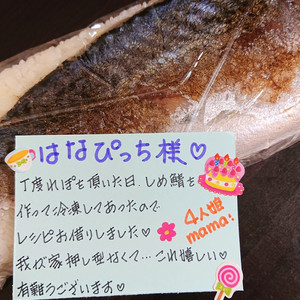 はなぴっち様♡
丁度れぽを頂いた日、しめ鯖を
作って冷凍してあったので
レシピお借りしました♡
我が家押し型なくて…これ嬉しい♡
有難うございます♡
4人姫
mama: